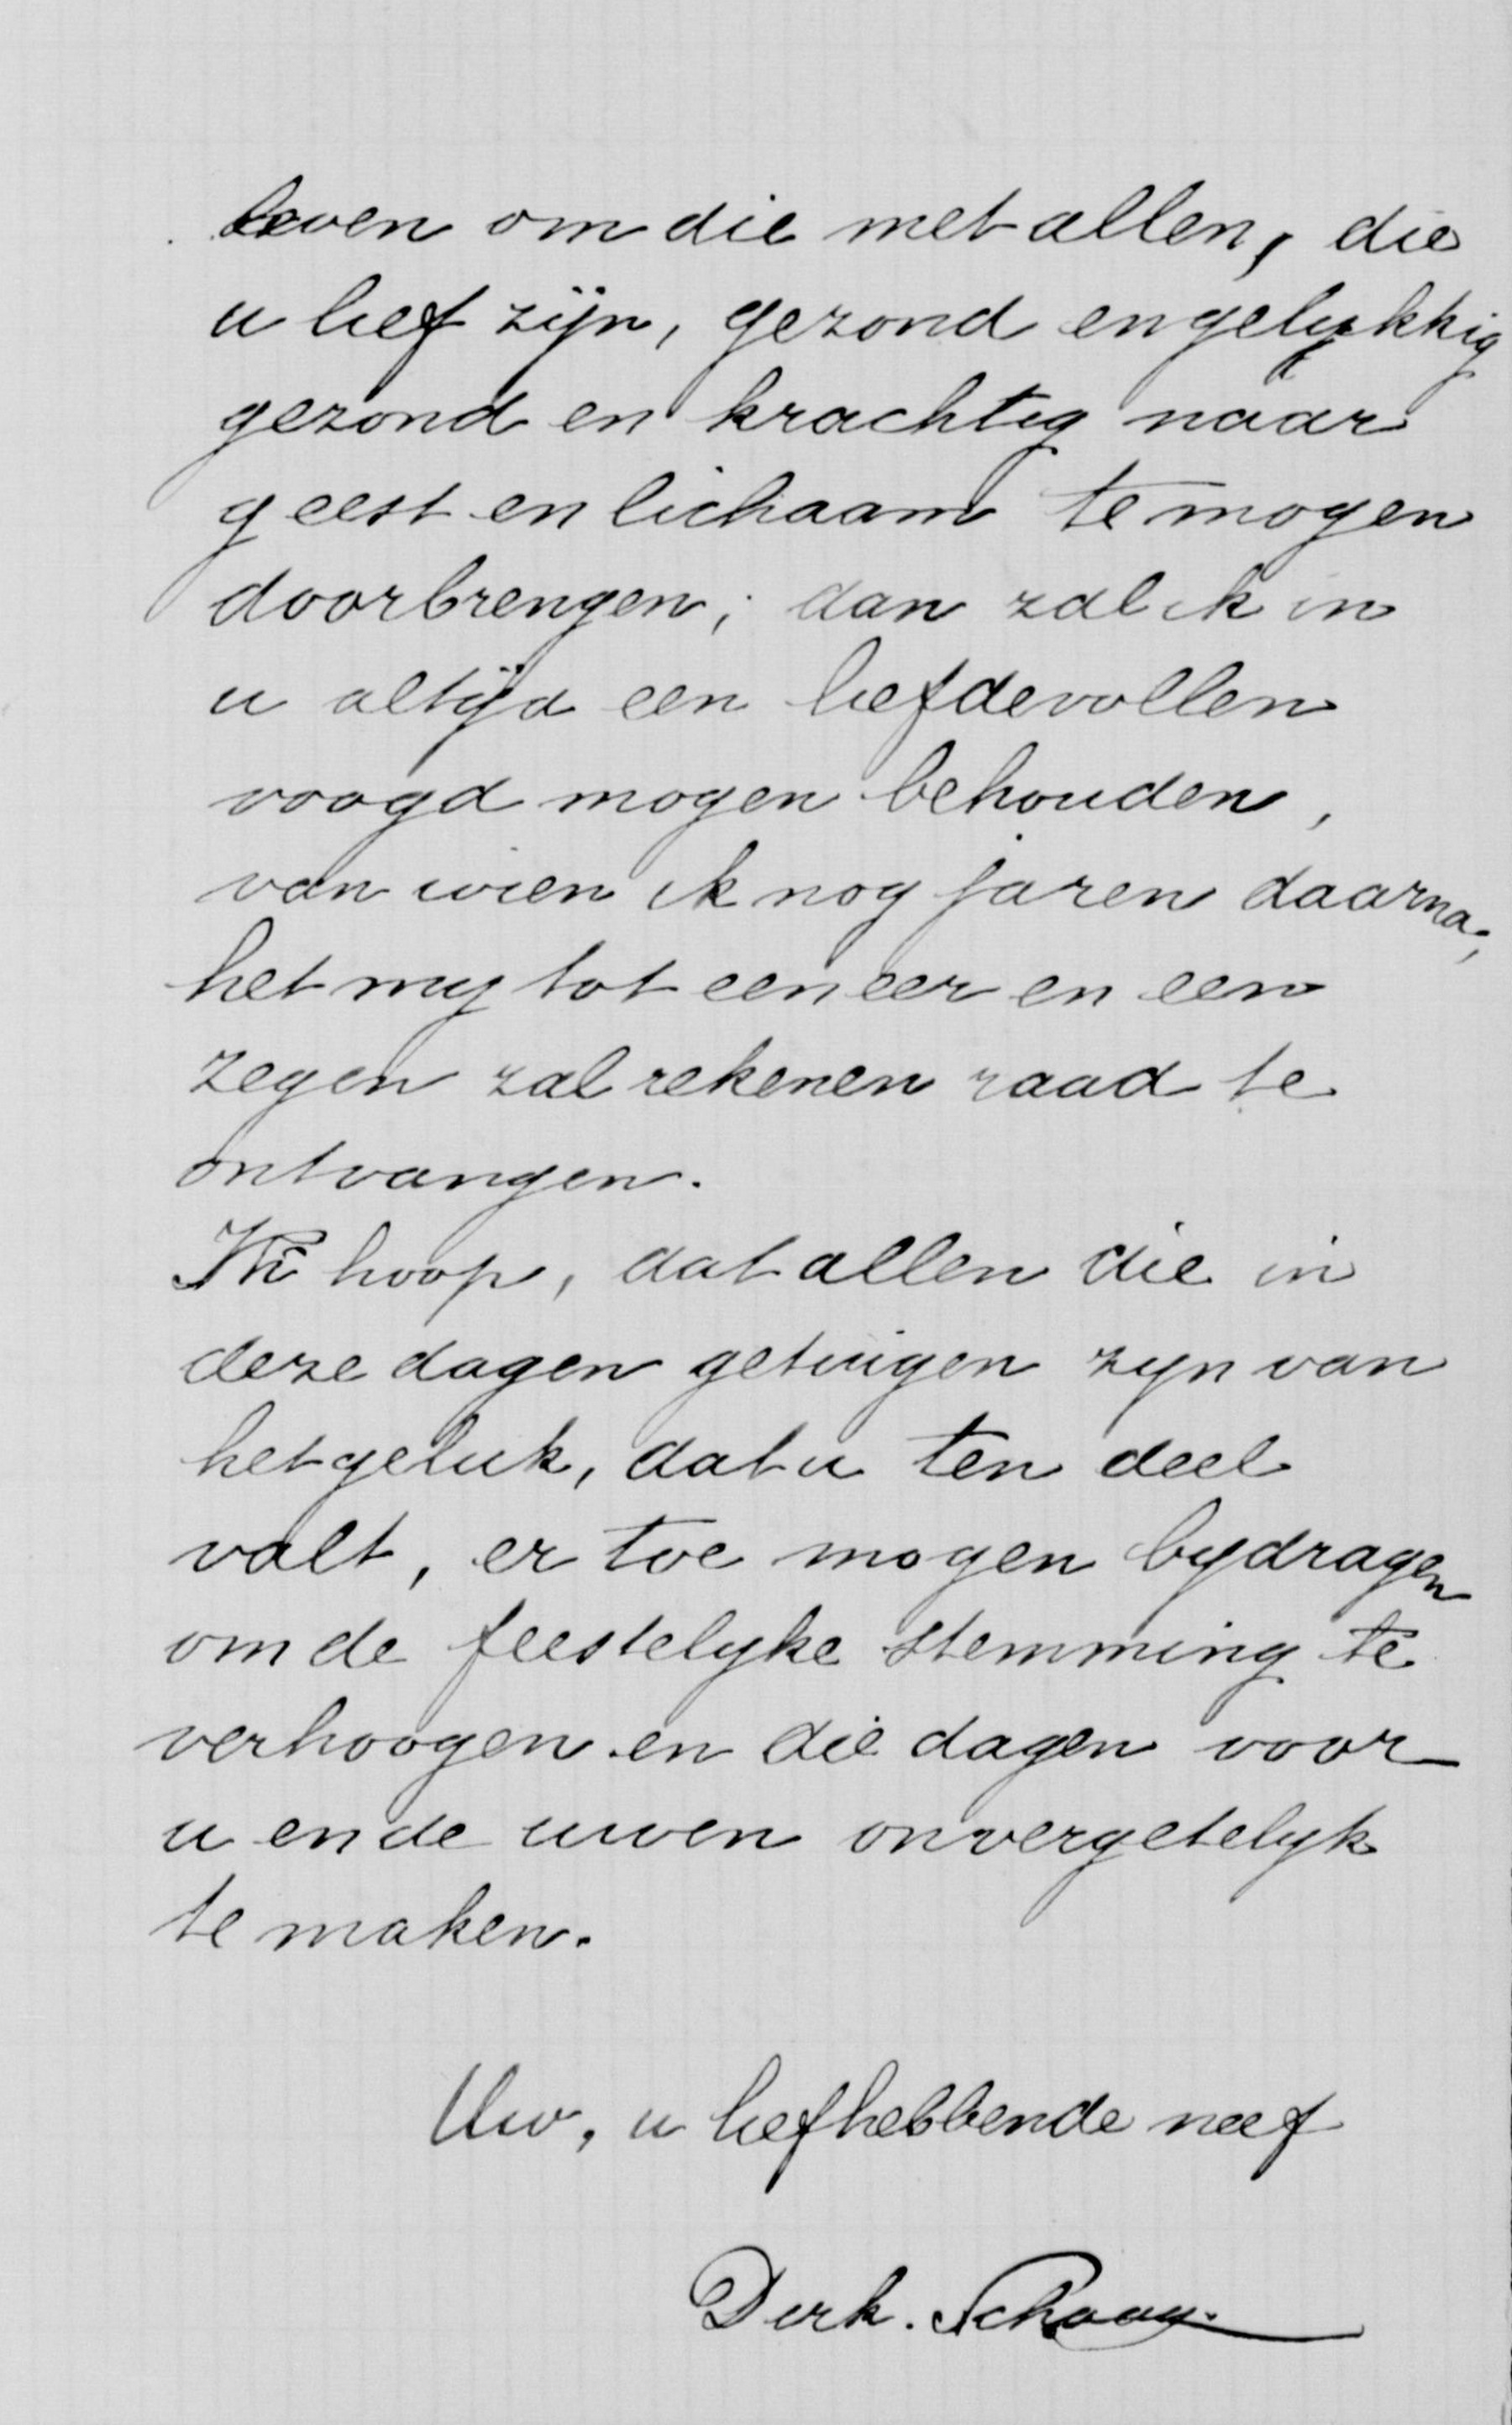 leven om die met allen, die
u lief zijn, gezond en gelukkig
gezond en krachtig naar
geest en lichaam te mogen
doorbrengen; dan zal ik in
u altijd een liefdevollen
voogd mogen behouden,
van wien ik nog jaren daarna,
het my tot een eer en een
zegen zal rekenen raad te
ontvangen.
Ik hoop, dat allen die in
deze dagen getuigen zyn van
het geluk, dat u ten deel
valt, er toe mogen bydragen
om de feestelyke stemming te
verhoogen en die dagen voor
u en de uwen onvergetelyk
te maken.
Uw, u liefhebbende neef
Dirk.